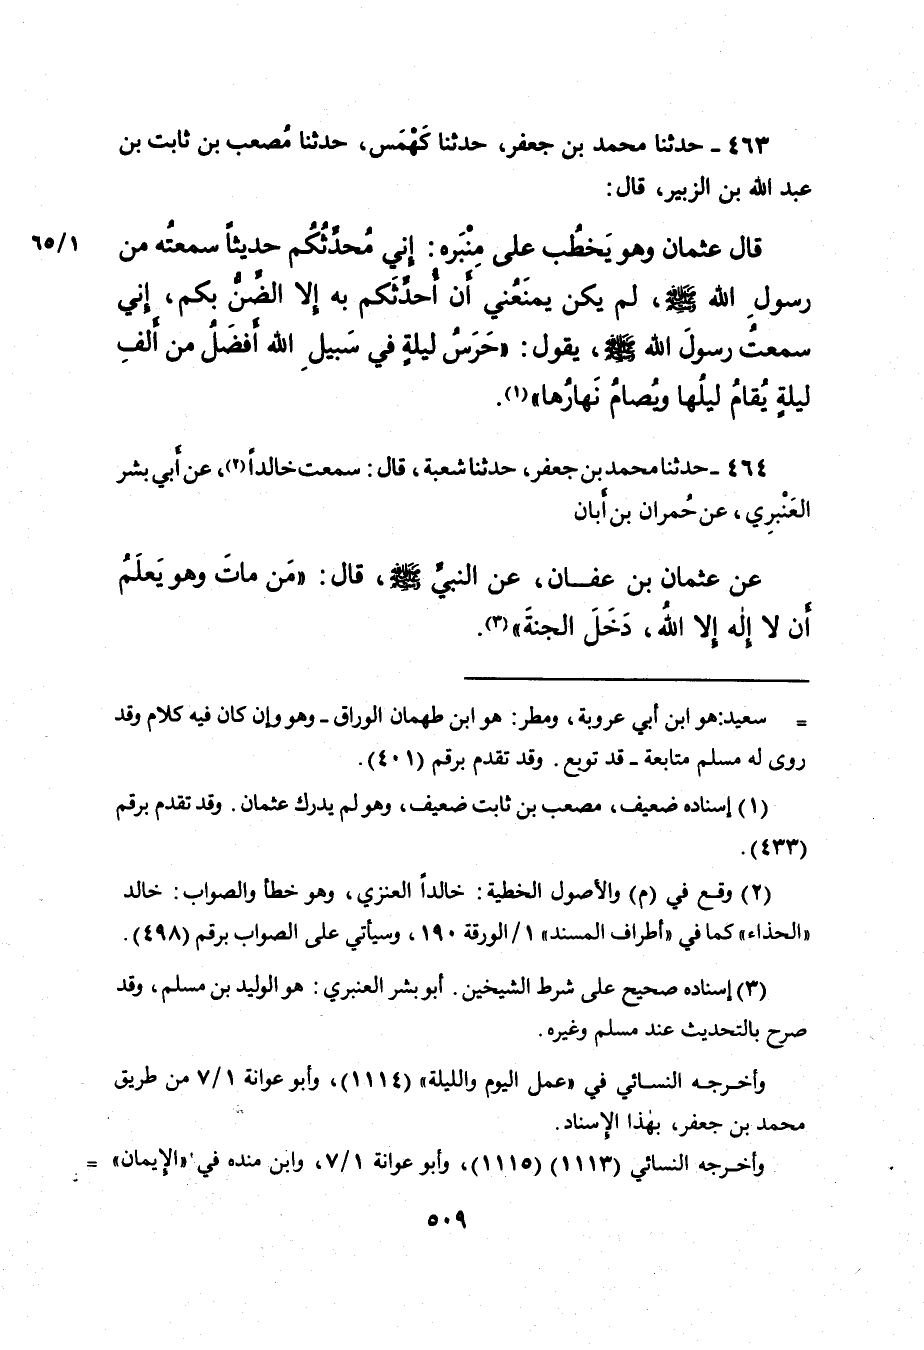 ٤٦٣ ـ حدثنا محمد بن جعفر، حدثنا كَهْمَس، حدثنا مُصعب بن ثابت بن
عبد الله بن الزبير، قال:
قال عثمان وهو يَخطُب على مِنْبَره: إني مُحدِّثُكُم حديثاً سمعتُه من
٦٥/١
رسولِ الله ﷺ، لم يكن يمنَعُني أَن أُحدِّثَكم به إلا الضِّنُّ بكم، إني
سمعتُ رسولَ الله ﷺ، يقول: «حَرَسُ ليلةٍ في سَبيلِ الله أَفضَلُ من أَلفِ
ليلةٍ يُقامُ ليلُها ويُصامُ نَهارُها»(١).
٤٦٤ ـ حدثنا محمد بن جعفر، حدثنا شعبة، قال: سمعت خالداً(٢)، عن أَبي بشر
العَنْبرِي، عن حُمران بن أَبان
عن عثمان بن عفــان، عن النبيِّ ﷺ، قال: «مَن ماتَ وهو يَعلَمُ
أَن لا إِلٰه إِلا اللهُ، دَخَلَ الجنةَ»(٣).
= سعيد:هو ابن أبي عروبة، ومطر: هو ابن طهمان الوراق ـ وهو وإن كان فيه كلام وقد
روى له مسلم متابعة ـ قد توبع. وقد تقدم برقم (٤٠١).
(١) إسناده ضعيف، مصعب بن ثابت ضعيف، وهو لم يدرك عثمان. وقد تقدم برقم
(٤٣٣).
(٢) وقـع في (م) والأصول الخطية: خالداً العنزي، وهو خطأ والصواب: خالد
«الحذاء» كما في «أطراف المسند» ١/الورقة ١٩٠، وسيأتي على الصواب برقم (٤٩٨).
(٣) إسناده صحيح على شرط الشيخين. أبو بشر العنبري: هو الوليد بن مسلم، وقد
صرح بالتحديث عند مسلم وغيره.
وأخـرجـه النسـائي في «عمل اليوم والليلة» (١١١٤)، وأبو عوانة ٧/١ من طريق
محمد بن جعفر، بهٰذا الإسناد.
وأخـرجه النسائي (١١١٣) (١١١٥)، وأبو عوانة ٧/١، وابن منده في «الإيمان» =
٥٠٩